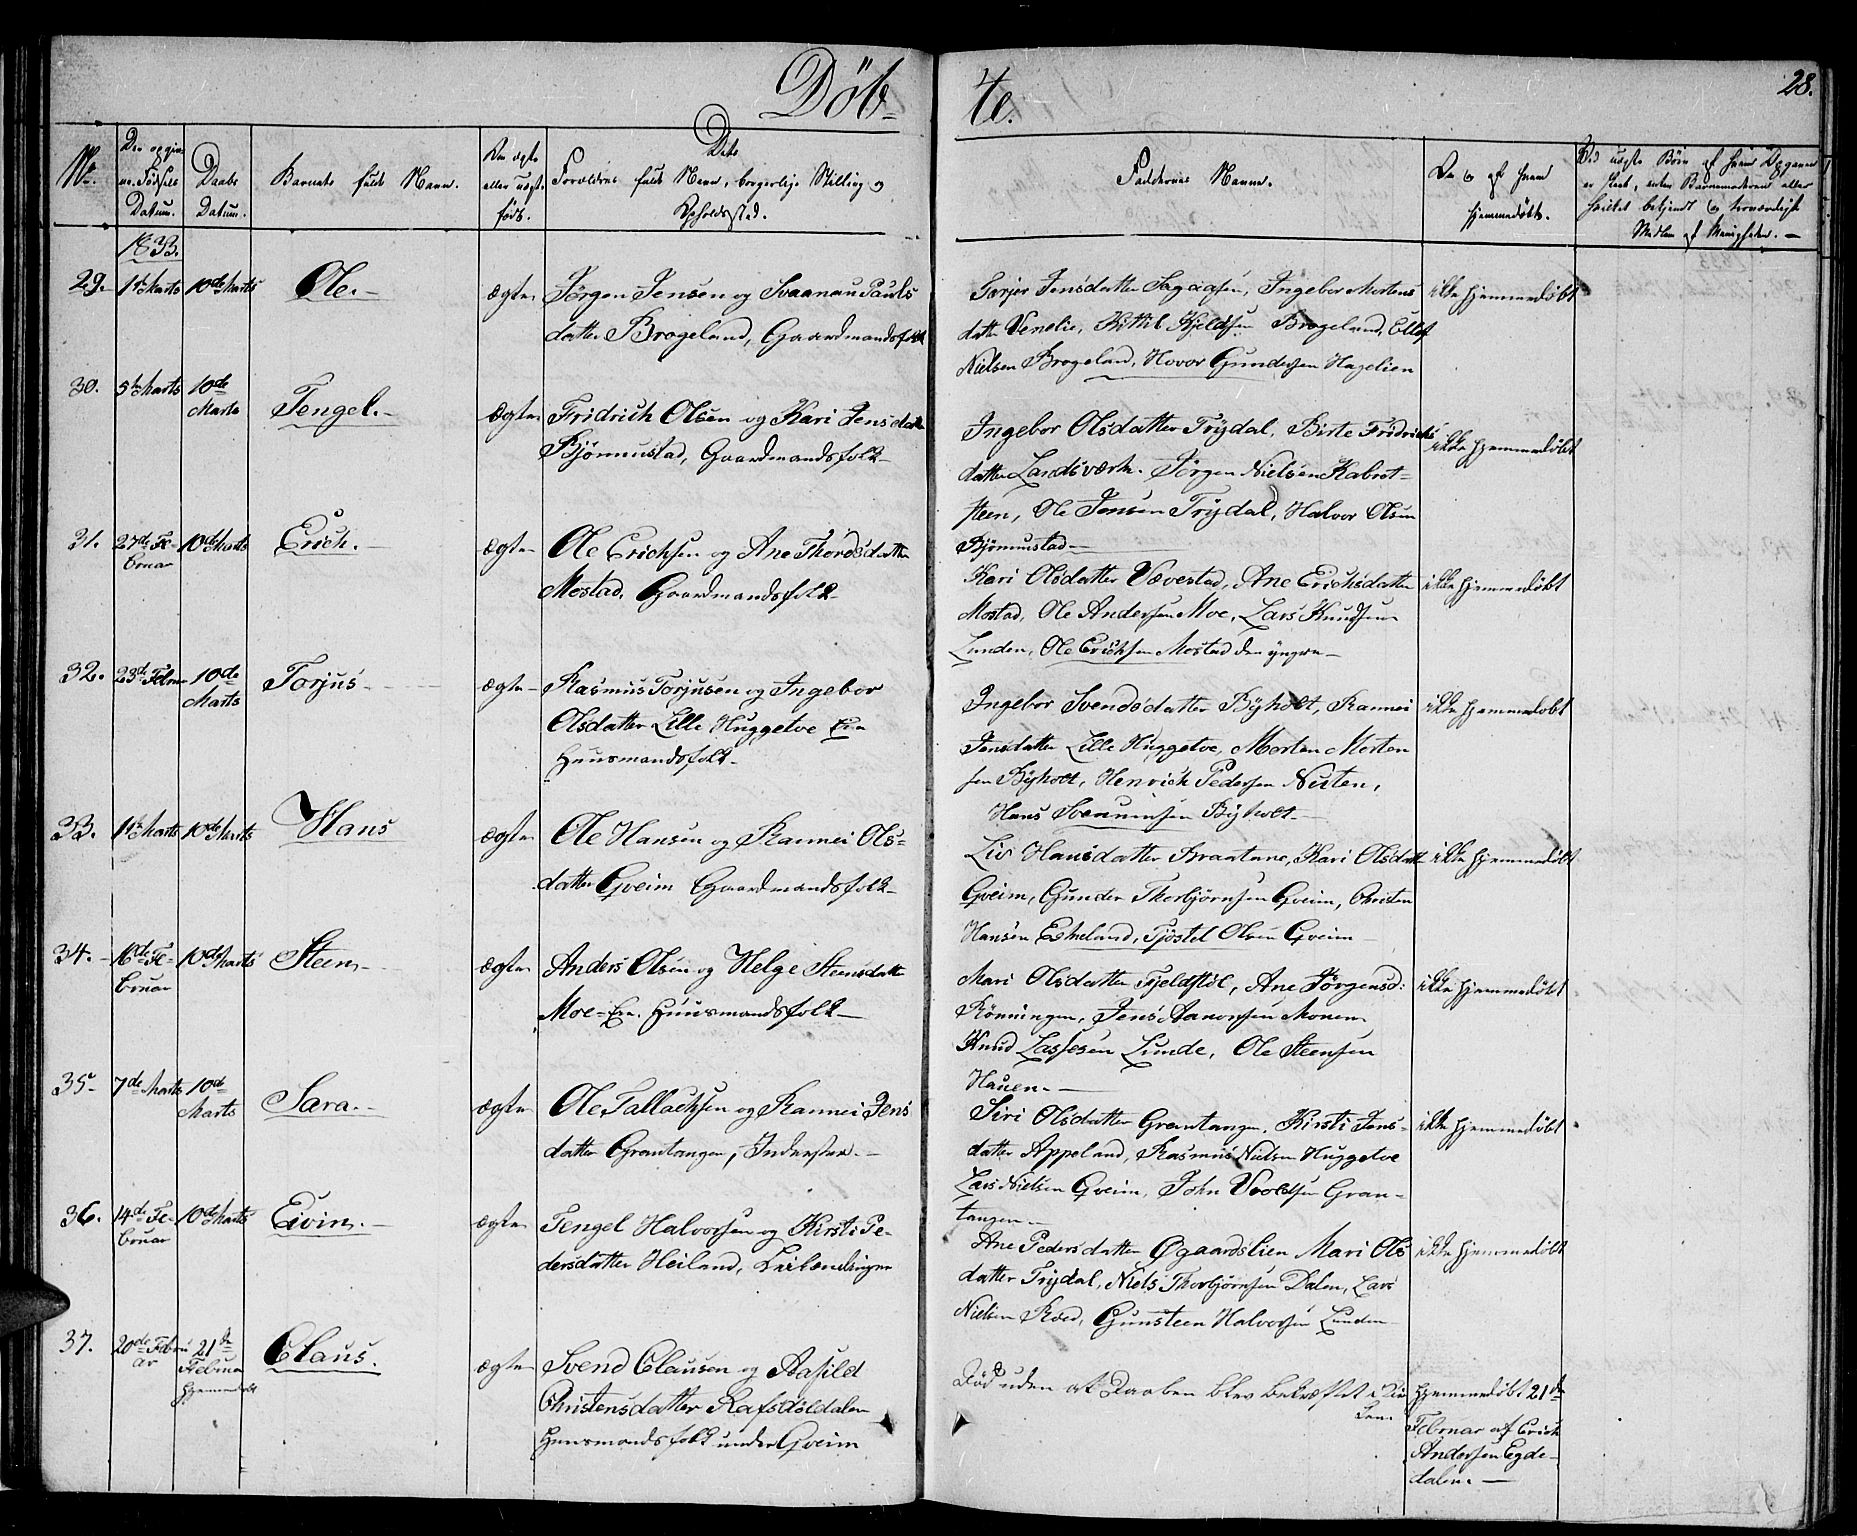 Döb-
te.
28.
No.
Den opgiv-
ne Födsels
Datum.
Daabs
Datum.
Barnets fulde Navn.
Om ægte
eller uægte
födt.
Dets
Forældres fulde Navn, borgerlige Stilling og
Opholdssted.
Faddernes Navne.
Om og af hvem
hjemmedöbt.
Ved uægte Börn af hvem Opgaven
er skeet, enten Barnemoderen eller
hvilket bekjendt og troværdigt
Medlem af Menigheden. -
1833.
29. 1ste Marts 10de Marts Ole. ægte Jörgen Jensen og Svaanau Pauls
datter Brogeland, Gaardmandsfolk
Tarjer Jensdatter Sagaasen, Ingebor Mortens
datter Venelie, Kittil Kjeldsen Brogeland, Ellef
Nielsen Brogeland, Hovor Gundersen Hagelien
ikke hjemmedöbt
30. 5te Marts 10de
Marts Tengel. ægte Fridrich Olsen og Kari Jensdatter
Björnmustad, Gaardmandsfolk
Ingebor Olsdatter Trydal, Birte Fridrichs
datter Landsværk. Jörgen Nielsen Kabret-
steen, Ole Jensen Trydal, Halvor Olsen
Björnmustad
ikke hjemmedöbt
31. 27de Fe-
bruar 10de Marts Erich. ægte Ole Erichsen og Ane Thordsdatter
Mostad, Gaardmandsfolk
Kari Olsdatter Vævestad, Ane Erichsdatter
Mostad, Ole Andersen Moe, Lars Knudsen
Lunden, Ole Erichsen Mostad den yngre
ikke hjemmedöbt
32. 23de Febru 10de
Marts Torjus ægte Rasmus Torjusen og Ingebor
Olsdatter Lille Huggetve Eie
Huusmandsfolk
Ingebor Svendsdatter Byholt, Rannei
Jensdatter Lille Huggetve, Morten Morten
sen Byholt, Henrich Pedersen Nesten,
Hans Svennunsen Byholt
ikke hjemmedöbt
33. 1ste Marts 10de Marts Hans ægte Ole Hansen og Rannei Ols-
datter Gveim Gaardmandsfolk
Liv Hansdatter Braatane, Kari Olsdatt
Gveim, Gunder Thorbjörnsen Gveim, Christen
Hansen Eskeland, Tjöstel Olsen Gveim
ikke hjemmedöbt
34. 16de Fe-
bruar 10de Marts Steen ægte Anders Olsen og Helge Steensdatte
Moe-Eie. Huusmandsfolk
Mari Olsdatter Fjeldstöl, Ane Jörgensd:
Rönningen, Jens Aanonsen Monen
Knud Lassesen Lunde, Ole Steensen
Hauen.
ikke hjemmedöbt
35. 7de Marts 10de
Marts Sara. ægte Ole Tallachsen og Rannei Jens
datter Grantangen, Inderster.
Siri Olsdatter Grantangen, Kirsti Jens-
datter Appeland, Rasmus Nielsen Huggetve
Lars Nielsen Gveim, John Uvoldsen Gran-
tangen.
ikke hjemmedöbt
36. 14de Fe-
bruar 10de Marts Eivin. ægte Tengel Halvorsen og Kirsti Pe-
dersdatter Heiland, Leilændinger
Ane Pedersdatter Øgaardslien Mari Ols
datter Trydal, Niels Thorbjörnsen Dalen, Lars
Nielsen Röed, Gunsteen Halvorsen Lunden
ikke hjemmedöbt
37. 20de Febru
ar 21de
Februar
hjemmedöbt Claus. ægte Svend Clausen og Aasild
Christensdatter Rafsdöldalen
Huusmandsfolk under Gveim
Död uden at Daaben blev bekræftet i Kir
ken.
hjemmedöbt 21de
Februar af Erich
Andersen Egde-
dalen.